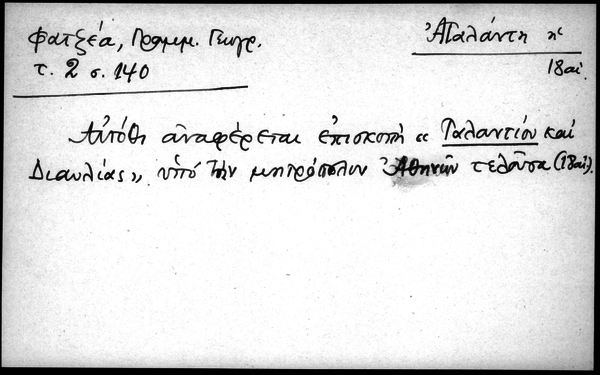 Φατζέα, Γραμμ. Γεωγρ.
τ. 2 σ. 140
Ἀταλάντη ἡ
18 αἰ.
Αὐτόθι ἀναφέρεται ἐπισκοπὴ « Ταλαντίου καὶ
Διαυλίας», ὑπὸ τὴν μητρόπολιν Ἀθηνῶν τελοῦσα (18 αἰ).